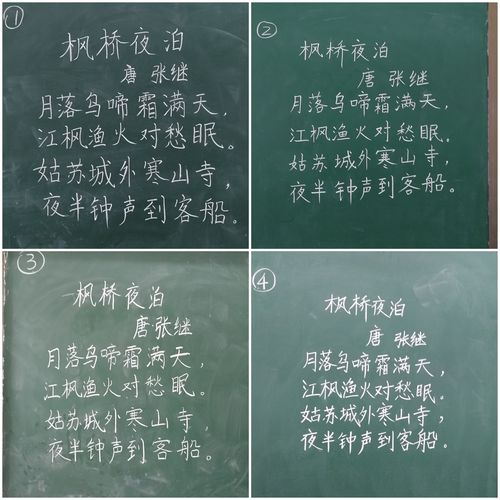 ①
枫桥夜泊
唐 张继
月落乌啼霜满天，
江枫渔火对愁眠。
姑苏城外寒山寺，
夜半钟声到客船。
②
枫桥夜泊
唐 张继
月落乌啼霜满天，
江枫渔火对愁眠。
姑苏城外寒山寺，
夜半钟声到客船。
③
枫桥夜泊
唐张继
月落乌啼霜满天，
江枫渔火对愁眠。
姑苏城外寒山寺，
夜半钟声到客船。
④
枫桥夜泊
唐 张继
月落乌啼霜满天，
江枫渔火对愁眠。
姑苏城外寒山寺，
夜半钟声到客船。